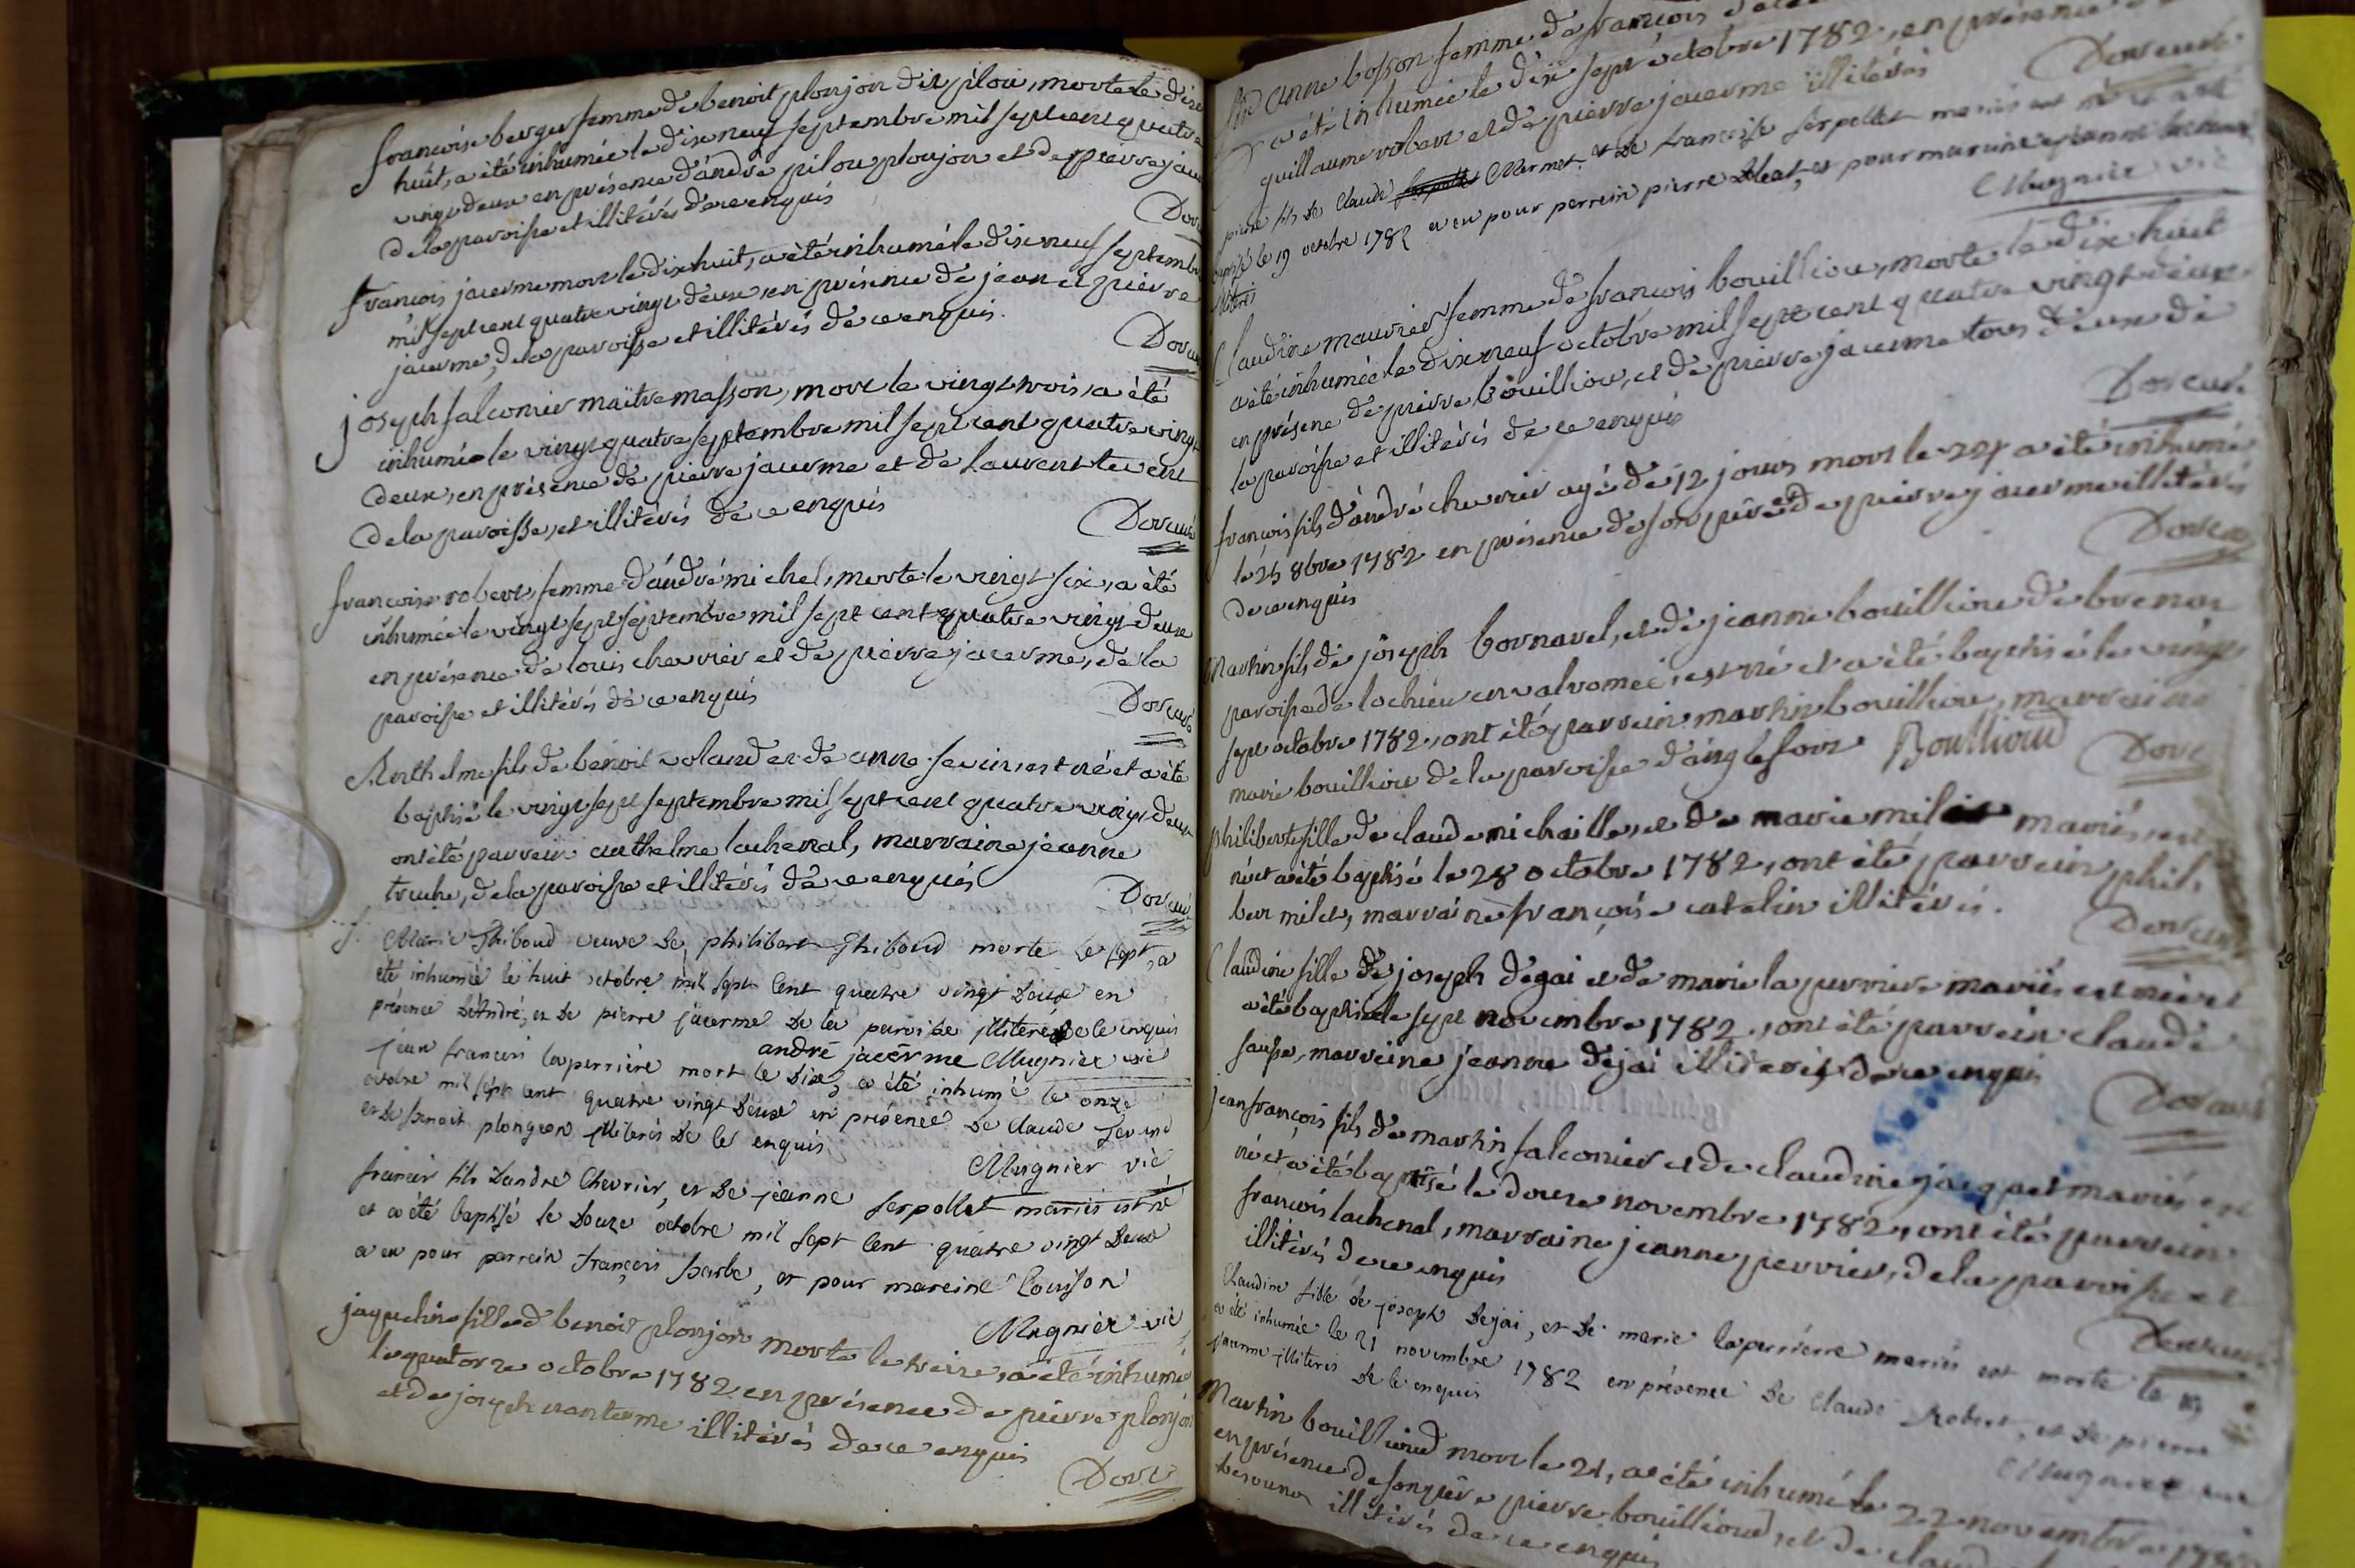 françoise berger femme de benoit plonjon dit pilou, morte le dix
huit, a été inhumée le dix neuf septembre mil sept cent quatre
vingt deux en présence d'andré pilou plonjon et de pierre jacer
de la paroisse et illiterés de ce enquis
Dorcu
françois jacerme mort le dix huit, a été inhumé le dix neuf septembr
mil sept cent quatre vingt deux en présence de jean et pierre
jacerme, de la paroisse et illiterés de ce enquis.
Dorcu
joseph falconier maître masson, mort le vingt trois, a été
inhumé le vingt quatre septembre mil sept cent quatre vingt
deux, en présence de pierre jacerme et de Laurent
de la paroisse, et illiterés de ce enquis
Dorcu
françoise robert femme d'andré michel, morte le vingt six, a été
inhumée le vingt sept septembre mil sept cent quatre vingt deux
en présence de louis chevrier et de pierre jacerme, de la
paroisse et illiterés de ce enquis
Dorcu
Anthelme fils de benoit voland et de anne sevin, est né et a été
baptisé le vingt sept septembre mil sept cent quatre vingt deux
ont été parrein anthelme lachenal, marraine jeanne
truche, de la paroisse et illiterés de ce enquis
Dorcu
Marie Thiboud veuve de philibert Thiboud morte le sept, a
été inhumée le huit octobre mil sept cent quatre vingt deux en
présence d'André, et de pierre jacerme de la paroisse illiteré de ce enquis
andré jacerme Mugnier vic
jean francois laperrière mort le dix, a été inhumé le onze
octobre mil sept cent quatre vingt deux en présence de claude
et de benoit plongeon illiterés de ce enquis
Mugnier vic
francois fils d'andre Chevrier, et de jeanne serpollet mariés est né
et a été baptisé le douze octobre mil sept cent quatre vingt deux
a eu pour perrein françois barbe, et pour mareine Louison
Mugnier vic
jaqueline fille d benoit plonjon morte le treize, a été inhumé
le quatorze octobre 1782 en présence de pierre plonjon
et de joseph illiterés de ce enquis
Dorc
anne bosson femme de françois
a été inhumée le dix sept octobre 1782, en présence
guillaume robert et de pierre jacerme illiterés
Dorcu
pierre fils de claude Marmet et de francoise serpollet mariés est né et a été
baptisé le 19 octobre 1782 a eu pour perrein pierre et pour mareine
Mugnier vic
Claudine maurier femme de françois bouilliou, morte le dix huit
a été inhumée le dix neuf octobre mil sept cent quatre vingt deux
en présence de pierre bouilliou, et de pierre jacerme tous deux de
la paroisse et illiterés de ce enquis
Dorcu
françois fils d'andré chevrier agé de 12 jours mort le 24 a été inhumé
le 25 8bre 1782 en présence de son père et de pierre jacerme illiterés
de ce enquis
Dorcu
Martin fils de joseph bornarel, et de jeanne bouilliou de brenaz
paroisse de lochieu en valromei, est né et a été baptisé le vingt
sept octobre 1782, ont été parrein martin bouilliou, marraine
marie bouilliou de la paroisse d'anglefort Boullioud
Dorc
philiberte fille de claude michaille, et de marie milet mariés, est
né et a été baptisé le 28 octobre 1782, ont été parrein phili
bert milet, marraine françoise catelin illiterés.
Dorcu
Claudine fille de joseph degai et de marie laperrière mariés est née et
a été baptisée le sept novembre 1782, ont été parrein claude
marreine jeanne dejai illiterés de ce enquis
Dorcu
jean françois fils de martin falconier et de claudine jacquet mariés est
né et a été baptisé le douze novembre 1782, ont été parrein
françois lachenal, marraine jeanne perrier, de la paroisse et
illiterés de ce enquis
Dorcu
Claudine fille de joseph dejai, et de marie laperrierre mariés est morte le 19
a été inhumée le 21 novembre 1782 en présence de claude Robert, et de pierre
jacerme illiterés de ce enquis
Mugnier vic
Martin bouillioud mort le 21, a été inhumé le 22 novembre 178
en présence de son père pierre bouillioud, et de claud
illiterés de ce enquis